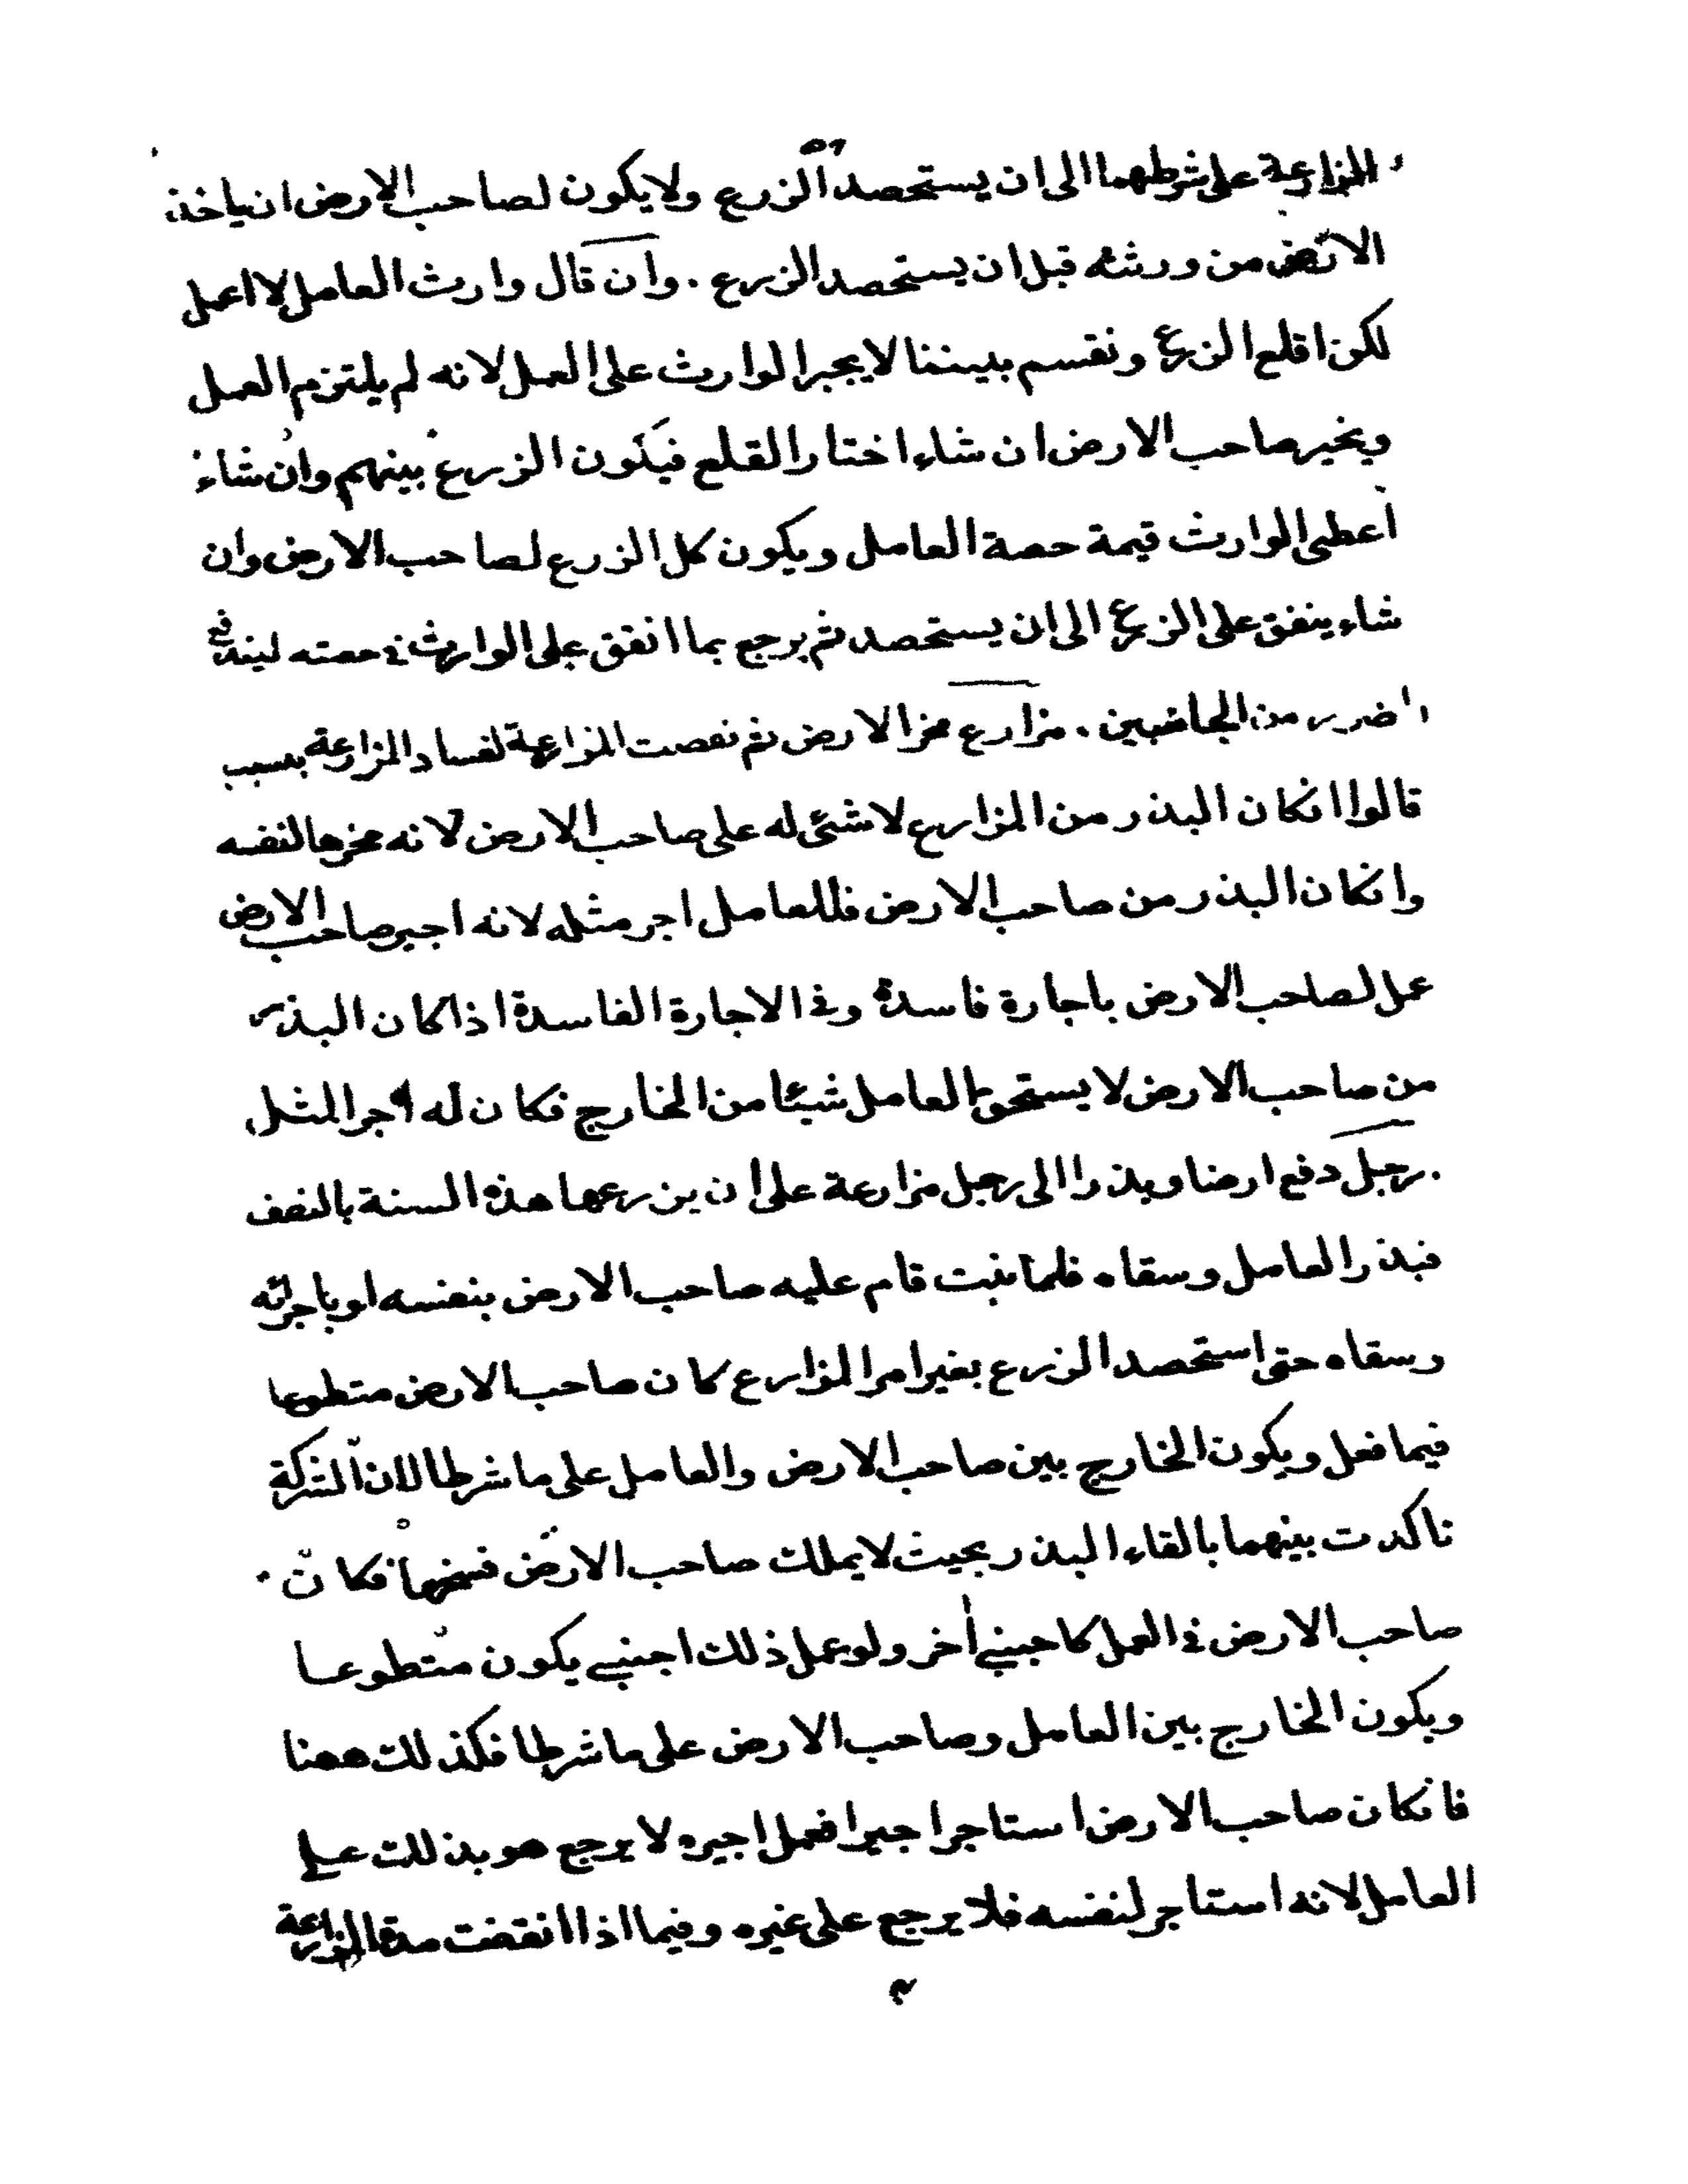 المزارعة على شرطهما الى ان يستحصد الزرع ولا يكون لصاحب الارض ان ياخذ
الارض من ورثته قبل ان يستحصد الزرع . وان قال وارث العامل لا اعمل
لكن اقلع الزرع ونقسم بيننا لا يجبر الوارث على العمل لانه لم يلتزم العمل
ويخير صاحب الارض ان شاء اختار القلع فيكون الزرع بينهم وان شاء
اعطى الوارث قيمة حصة العامل ويكون كل الزرع لصاحب الارض وان
شاء ينفق على الزرع الى ان يستحصد ثم يرجع بما انفق على الوارث في حصته ليندفع
الضرر من الجانبين . مزارع الارض ثم المزارعة لفساد المزارعة بسبب
قالوا انكان البذر من المزارع لا شئ له على صاحب الارض لانه لنفسه
وانكان البذر من صاحب الارض فللعامل اجر مثله لانه اجير صاحب الارض
عمل لصاحب الارض باجارة فاسدة وفي الاجارة الفاسدة اذا كان البذر
من صاحب الارض لا يستحق العامل شيئا من الخارج فكان له اجر المثل
. رجل دفع ارضا وبذرا الى رجل مزارعة على ان يزرعها هذه السنة بالنصف
فبذر العامل وسقاه فلما نبت قام عليه صاحب الارض بنفسه او باجرائه
وسقاه حتى استحصد الزرع بغير امر المزارع كان صاحب الارض متطوعا
فيما فعل ويكون الخارج بين صاحب الارض والعامل على ما شرطا لان الشركة
تاكدت بينهما بالقاء البذر بحيث لا يملك صاحب الارض فسخها فكان
صاحب الارض في العمل كاجنبي آخر ولو عمل ذلك اجنبي يكون متطوعا
ويكون الخارج بين العامل وصاحب الارض على ما شرطا فكذلك ههنا
فانكان صاحب الارض استاجر اجيرا فعمل اجيره لا يرجع هو بذلك على
العامل لانه استاجر لنفسه فلا يرجع على غيره وفيما اذا انقضت مدة المزارعة